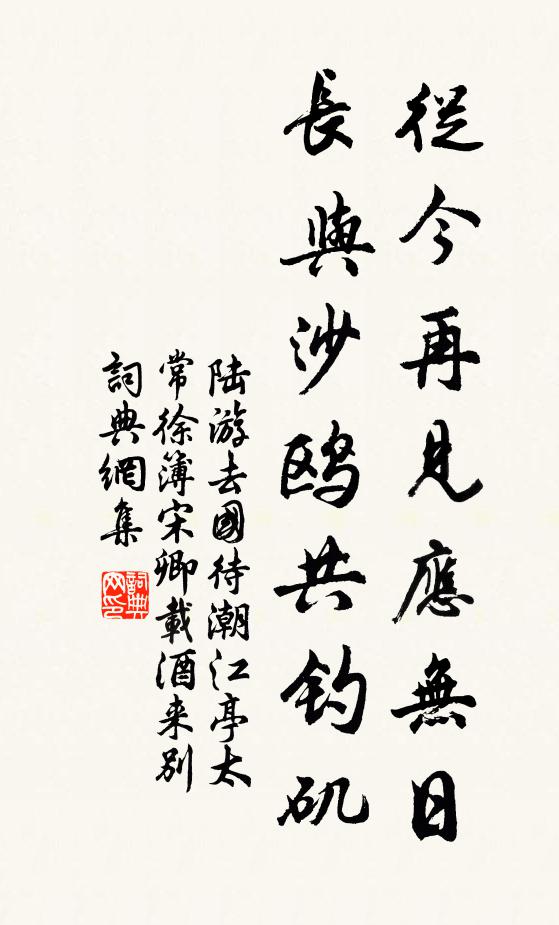 從今再見應無日
長與沙鸥共钓矶
陆游去國待潮江亭太
常徐簿宋卿載酒来别
詞典網集
詞典网印